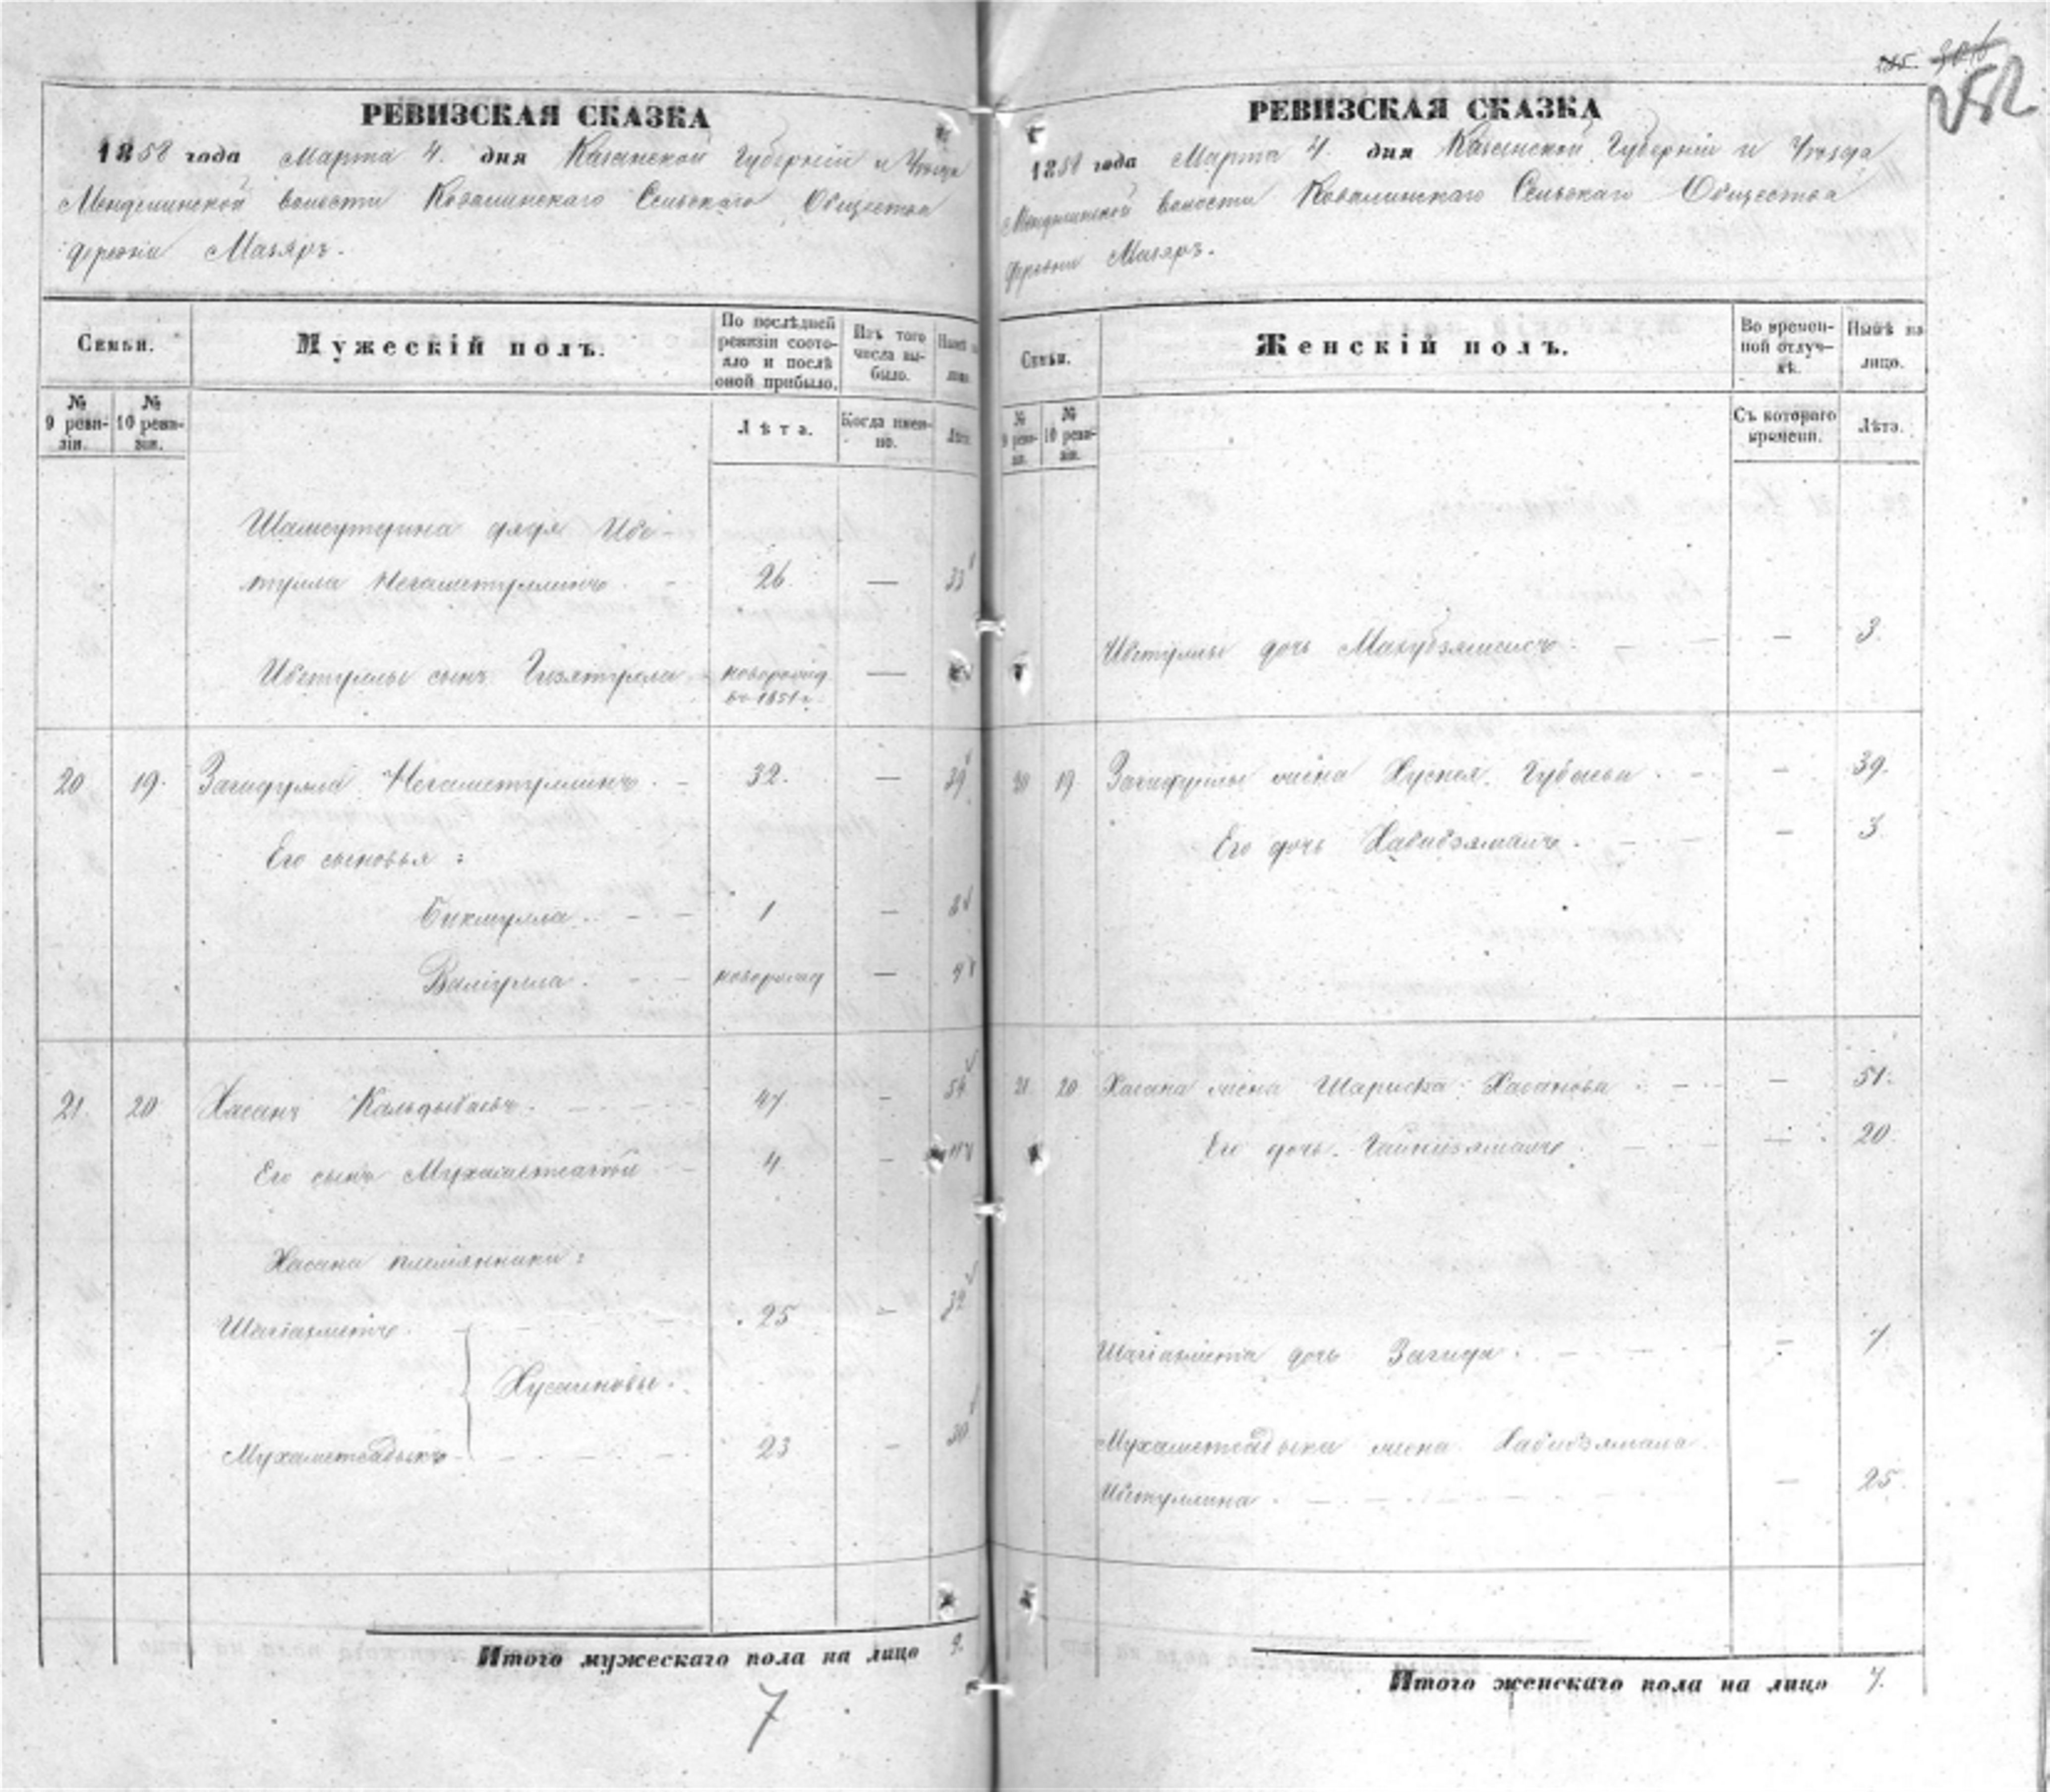 РЕВИЗСКАЯ СКАЗКА
1858 года Марта 4. дня Казанской Губерніи и Уѣзда
Менделинской волости Ковалинскаго Сельскаго Общества
деревни Мазяръ.
Семьи.
Мужескій полъ.
По послѣдней ревизіи состояло и послѣ оной прибыло.
Изъ того числа выбыло.
Нынѣ на лицо.
№ 9 ревизіи.
№ 10 ревизіи.
Лѣта.
Когда именно.
Лѣта.
Шамсутдина дядя Ибе-
тулла Негаметуллинъ 26. — 33
Ибетуллы сынъ Гизятулла новорожд въ 1851 г. —
20 19. Загидулла Негаметуллинъ. 32. — 39
Его сыновья:
Бикмулла. 1 — 8
Валіулла. новорожд — 4
21. 20 Хасанъ Кальдыбаевъ. 47 — 54
Его сынъ 4 — 11
Хасана племянники:
Шагіахметъ 25 — 32
Хусаиновы.
Мухаметсадыкъ 23 — 30
Итого мужескаго пола на лицо 9.
7
РЕВИЗСКАЯ СКАЗКА
1858 года Марта 4. дня Казанской Губерніи и Уѣзда
Менделинской волости Ковалинскаго Сельскаго Общества
деревни Мазяръ.
Семьи.
Женскій полъ.
Во временной отлучкѣ.
Нынѣ на лицо.
№ 9 ревизіи.
№ 10 ревизіи.
Съ котораго времени.
Лѣта.
Ибетуллы дочь — 3.
20 19 Загидуллы жена Хусня Губаева. — 39.
Его дочь Хабибзямалъ. — 3
21 20 Хасана жена Хасанова — 51.
Его дочь Гайнизямалъ — 20.
Шагіахмета дочь Загида. — 7.
Мухаметсадыка жена Хабибзямала
Ибетуллина. — 25.
Итого женскаго пола на лицо 7.